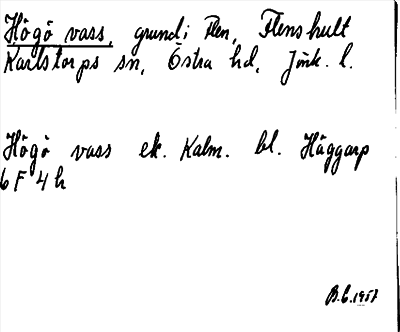 Högö vass, grund i Flen, Flenshult
Karlstorps sn, Östra hd, Jönk. l.
Högö vass ek. Kalm. bl. Häggarp
6 F 4 h
B.C. 1957